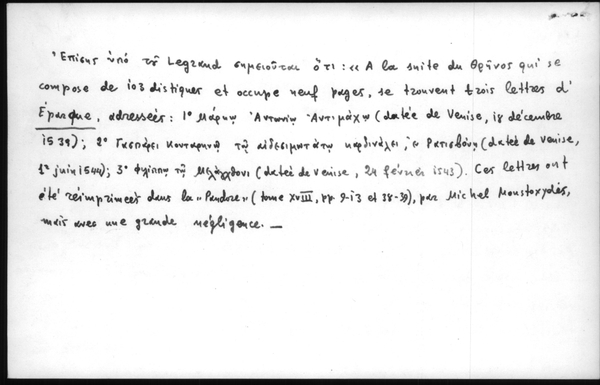 Ἐπίσης ὑπὸ τοῦ Legrand σημειοῦται ὅτι: «A la suite du θρῆνος qui se
compose de 103 distiques et occupe neuf pages, se trouvent trois lettres d'
Éparque, adressées: 1° Μάρκῳ Ἀντωνίῳ Ἀντιμάχῳ (datée de Venise, 18 décembre
1539); 2° Γασπάρει Κονταρηνῷ τῷ αἰδεσιμωτάτῳ καρδινάλει, ἐς Ρατισβόνῃ (datée de Venise,
1er juin 1544); 3° Φιλίππῳ τῷ Μελάγχθονι (datée de Venise, 24 février 1543). Ces lettres ont
été réimprimées dans la «Pandore» (tome XVIII, pp. 9-13 et 38-39), par Michel Moustoxydès,
mais avec une grande négligence. —